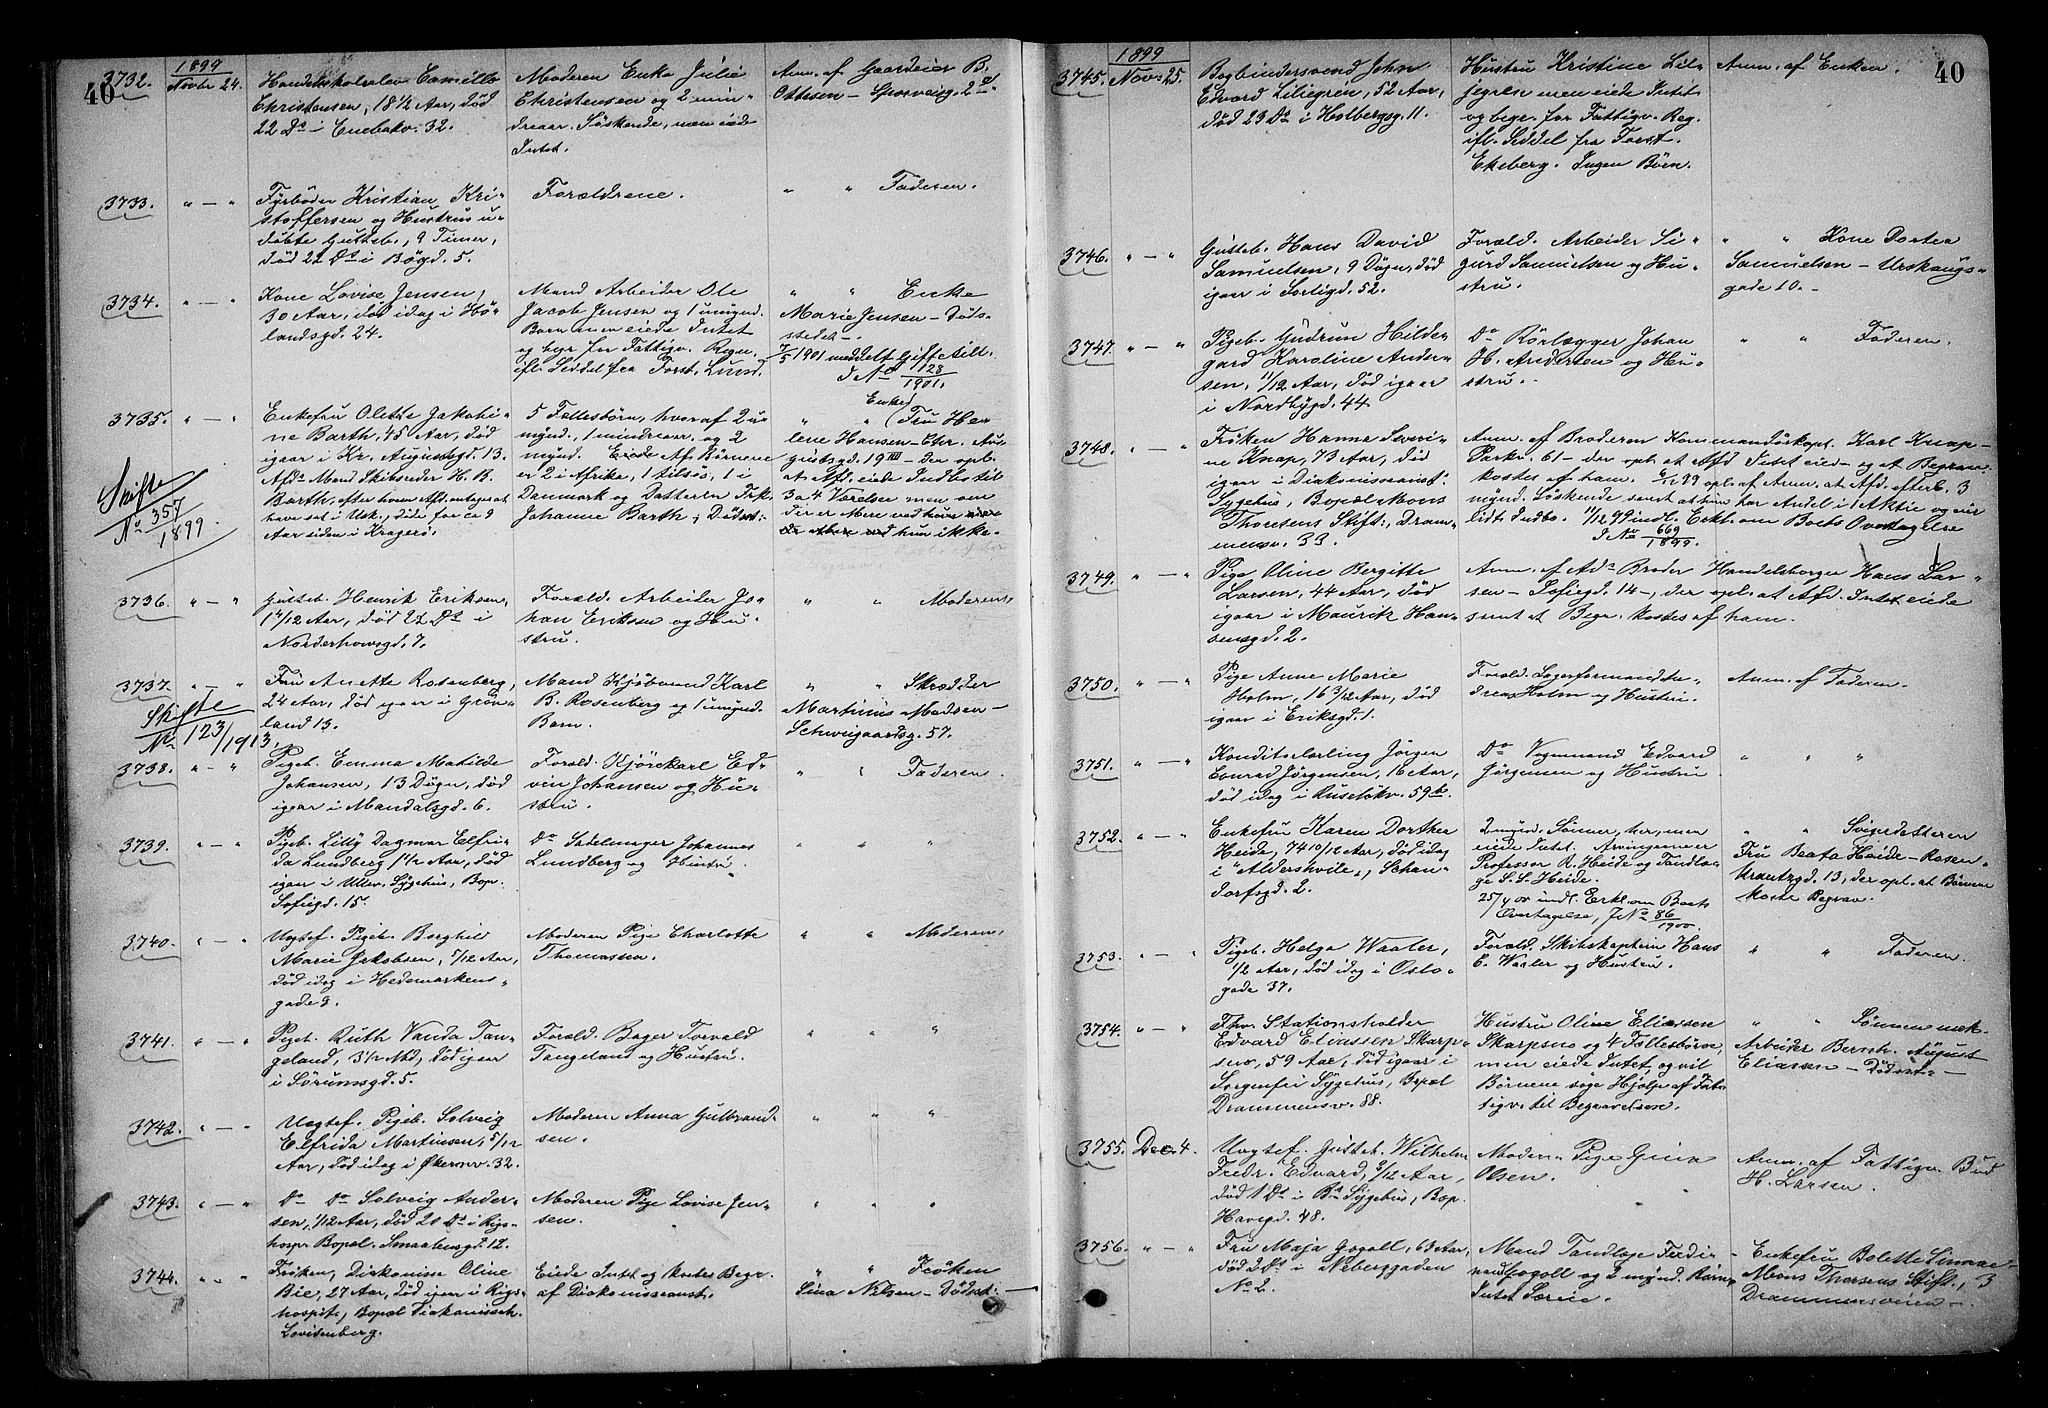 40
1899
3732. Novbr 24. Handelsskoleelev Camillo
Christensen, 18 1/2 Aar, død
22 Ds i Enebakv. 32.
Moderen Enke Julie
Christensen og 2 min-
dreaar. Söskende, men eiede
Intet.
Anm. af Gaardeier B.
Ottesen – Sporveisg. 2
3733. " — " Fyrböder Kristian Kri-
stoffersen og Hustrus u-
döbte Gutteb., 9 Timer,
død 22 Ds i Bögd. 5.
Forældrene.
" " Faderen.
3734. " — " Kone Lovise Jensen,
30 Aar, død idag i Hö-
landsgd. 24.
Mand Arbeider Ole
Jacob Jensen og 1 umynd.
Barn men eiede Intet
og begr. for Fattigv. Regn.
ifl. Seddel fra Forst. Lund.
" " Enke
Marie Jensen – Döds-
stedet –
7/5 1901 meddelt Skifteatt.
J No 123/1901.
3735. " — " Enkefru Olette Jakobi-
ne Barth, 45 Aar, død
igaar i Kr. Augustsgd. 13.
Afdøs Mand Skibsreder H. B.
Barth, efter hvem Afd. antages at
have sat i Usk., døde for ca 9
Aar siden i Kragerö.
Skifte
No 357
1899.
5 Fællesbörn, hvoraf 2 u-
mynd., 1 mindreaar. og 2
mynd. Af Börnene
er 2 i Afrika, 1 tilsös, 1 i
Danmark og Datteren Frk.
Johanne Barth i Dödsst:
Enkefru
" " (Fru He-
lene Hansen – Chr. Au-
gustsgd. 19 III – der opl.
at Afd. eiede Indbo til
3 a 4 Værelser men om
der er Mere ved hun ikke.
3736. " — " Gutteb. Henrik Eriksen,
1 4/12 Aar, død 22 Ds i
Norderhovsgd. 7.
Foræld. Arbeider Jo-
han Eriksen og Hu-
stru.
" " Moderen.
3737. " — " Fru Anette Rosenberg,
24 Aar, død igaar i Grön-
land 13.
Skifte
No 123/1913.
Mand Kjöbmand Karl
B. Rosenberg og 1 umynd.
Barn.
" " Skrædder
Martinius Madsen –
Schweigaardsg. 57.
3738. " — " Pigeb. Emma Matilde
Johansen, 13 Dögn, død
igaar i Mandalsgd. 6.
Foræld. Kjörekarl Ed-
vin Johansen og Hu-
stru.
" " Faderen.
3739. " — " Pigeb. Lilly Dagmar Elfri-
da Lundberg 1 1/2 Aar, død
igaar i Ullev. Sygehus, Bop.
Sofiegd. 15.
Do Sadelmager Johannes
Lundberg og Hustru.
" " "
3740. " — " Uegtef. Pigeb. Borghil
Marie Jakobsen, 7/12 Aar,
død idag i Hedemarkens-
gade 9.
Moderen Pige Charlotte
Thomassen.
" " Moderen.
3741. " — " Pigeb. Ruth Vanda Tan-
geland, 3 1/2 Md, død igaar
i Sörumsgd. 5.
Foræld. Bager Torvald
Tangeland og Hustru.
" " "
3742. " — " Uegtef. Pigeb. Solveig
Elfrida Martinsen, 5/12
Aar, død idag i Økernv. 32.
Moderen Anna Gulbrand-
sen.
" " "
3743. " — " Do Do Solveig Ander-
sen, 1/12 Aar, død 20 Ds i Rigs-
hosp. Bopæl. Smaalensgd. 12.
Moderen Pige Lovise Jen-
sen.
" " "
3744. " — " Fröken, Diakonisse Oline
Bie, 27 Aar, død igaar i Rigs-
hospit., Bopæl Diakonissch.
Lovisenberg.
Eiede Intet og kostes Begr.
af Diakonisseanst.
" " Fröken
Lina Nilsen – Dödsst: –
40
1899
3745. Nov. 25. Bogbindersvend John
Edvard Liliegren, 52 Aar,
død 23 Ds i Holbergsg. 11.
Hustru Kristine Lil-
jegren men eiede Intet
og begr. for Fattigv. Reg.
ifl. Seddel fra Forst.
Ekeberg. Ingen Börn.
Anm. af Enken.
3746. " — " Gutteb. Hans David
Samuelsen, 9 Dögn, død
igaar i Sorligd. 52.
Foræld. Arbeider Si-
gurd Samuelsen og Hu-
stru.
" " Kone Dortea
Samuelsen – Urskougs-
gade 10. –
3747. " — " Pigeb. Gudrun Hilde-
gard Karoline Ander-
sen, 11/12 Aar, död igaar
i Nordbygd. 44.
Do Rörlægger Johan
H. Andersen og Hu-
stru.
" " Faderen.
3748. " — " Fröken Hanna Severi-
ne Knap, 73 Aar, död
igaar i Diakonisseanst:
Sygehus, Bopæl Mons
Thoresens Stift:, Dram-
mensv. 33.
Anm. af Broderen Kommandörkapt. Karl Knap –
Parkv. 61 – der opl. at Afd Intet eied – og at Begrav.
kostes af ham. 6/12 99 opl. af Anm. at Afd. efterl. 3
mynd. Söskende samt at hun har Andel i 1 Aktie og eier
lidt Indbo. 11/12 99 indl. Erkl. om Boets Overtagelse
J No 669/1899.
3749. " — " Pige Oline Bergitte
Larsen, 44 Aar, död
igaar i Mauritz Han-
sensgd. 2.
Anm. af Afds Broder Handelsborger Hans Lar-
sen – Sofiegd. 14 –, der opl. at Afd. Intet eiede
samt at Begr. kostes af ham.
3750. " — " Pige Anne Marie
Holm, 16 3/12 Aar, död
igaar i Eriksgd. 1.
Foræld. Lagerformand
Holm og Hustru.
Anm. af Faderen.
3751. " — " Konditorlærling Jörgen
Conrad Jörgensen, 16 Aar,
död idag i Ruselökv. 59 b.
Do Vognmand Edvard
Jörgensen og Hustru
" " "
3752. " — " Enkefru Karen Dorthea
Heide, 74 10/12 Aar, död idag
i "Aldershvile", Schan-
dorfsgd. 2.
2 mynd. Sönner, her, men
eiede Intet. Arvingerne er
Professor R. Heide og Tandlæ-
ge S. S. Heide.
25/4 00 indl. Erkl. om Boets
Overtagelse, J No 86/1900.
" " Svigerdatteren
Fru Beata Heide – Rosen-
krantzgd. 13, der opl. at Börnene
koste Begrav.
3753. " — " Pigeb. Helga Waaler,
1/2 Aar, död idag i Oslo-
gade 37.
Foræld. Skibskaptein Hans
E. Waaler og Hustru.
" " Faderen.
3754. " — " Fhv. Stationsholder
Edvard Eliassen Skarp-
sno, 59 Aar, död igaar i
Sorgenfri Sygehus, Bopæl
Drammensv. 88.
Hustru Oline Eliassen
Skarpsno og 4 Fællesbörn,
men eiede Intet, og vil
Börnene söge Hjælp af Fat-
tigv. til Begravelsen.
" " Sönnen mek.
Arbeider Bernh. August
Eliassen – Dödsst: –
3755. Dec. 4. Uegtef. Gutteb. Wilhelm
Fredr. Edvard, 9/12 Aar,
död 1 Ds i Bs Sygehus, Bop.
Havegd. 48.
Moder. Pige Gina
Olsen.
Anm. af Fattigv. Bud
H. Larsen.
3756. " — " Fru Maja Gogoll, 63 Aar,
död 2 Ds i Neberggaden
No 2.
Mand Tandlæge Ferdi-
nand Gogoll og 2 mynd. Börn.
Intet Særeie.
Enkefru Bolette
Mons Thorsens Stift., 3
Drammensveien –